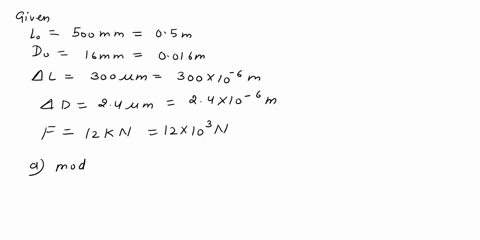 Given
L₀ = 500mm = 0.5m
D₀ = 16mm = 0.016m
ΔL = 300μm = 300×10⁻⁶ m
ΔD = 2.4μm = 2.4×10⁻⁶ m
F = 12kN = 12×10³N
a) mod